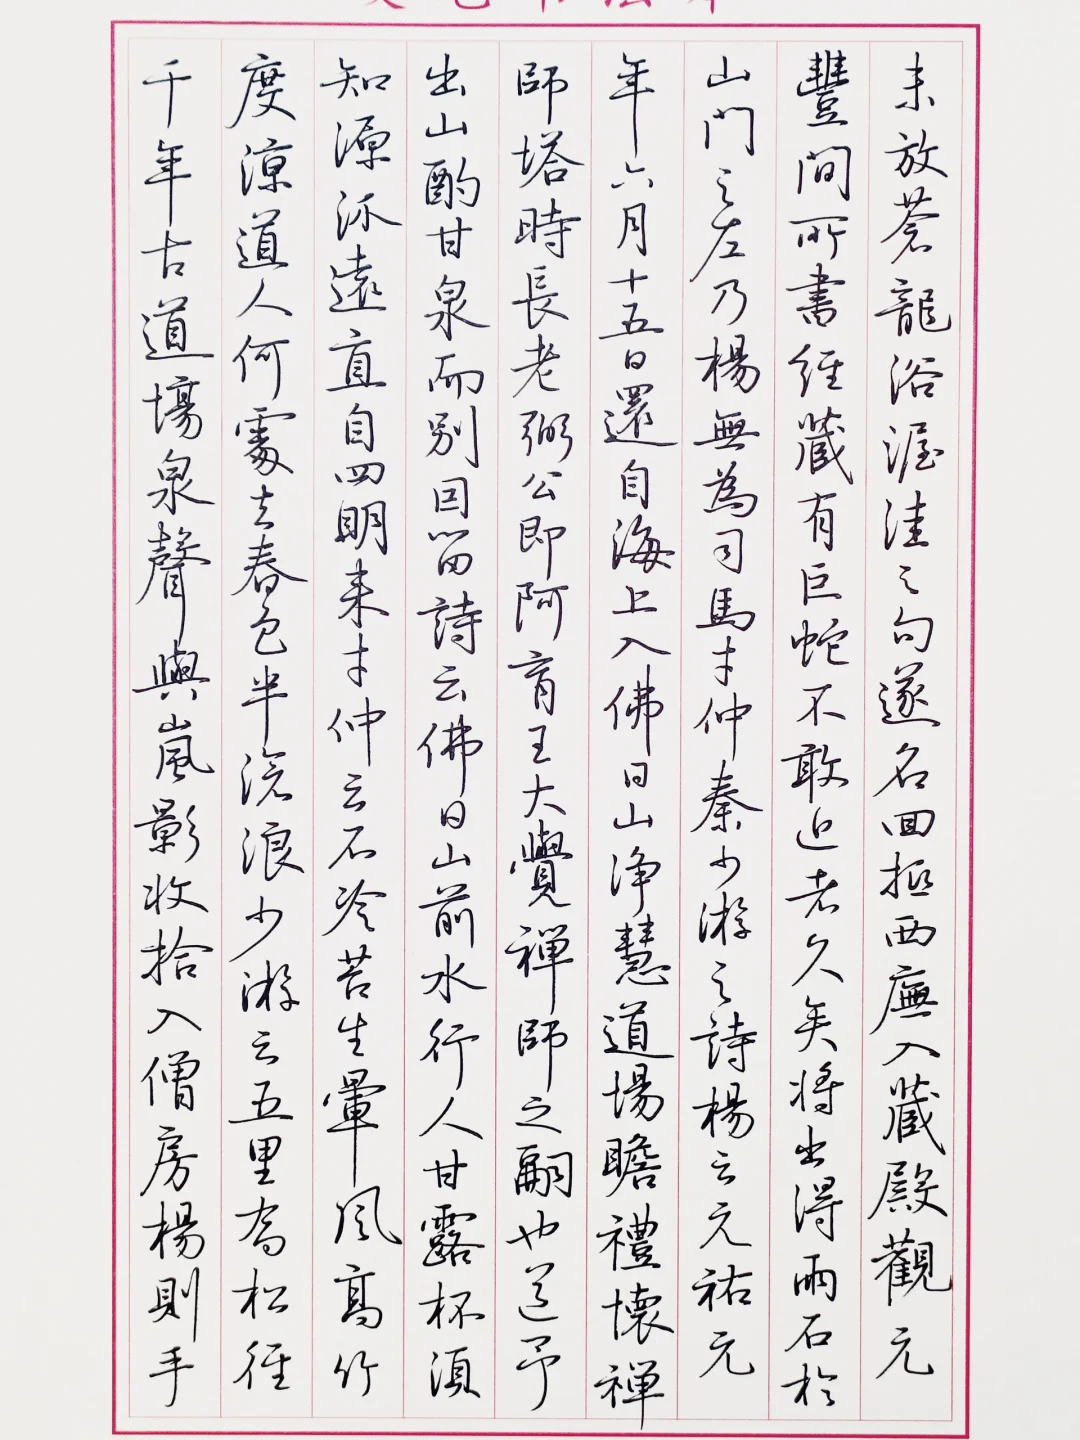 未放蒼龍浴渥洼之句遂名回抵西廡入藏殿觀元
豐間所書經藏有巨蛇不敢近者久矣將出得兩石於
山門之左乃楊無為司馬才仲秦少游之詩楊云元祐元
年六月十五日還自海上入佛日山净慧道場瞻禮懷禅
師塔時長老弼公即阿育王大覺禅師之嗣也送予
出山酌甘泉而別因留詩云佛日山前水行人甘露杯須
知源派遠直自四明来才仲云石冷苔生暈風高竹
度涼道人何處去春色半滄浪少游云五里喬松徑
千年古道場泉聲與嵐影收拾入僧房楊則手